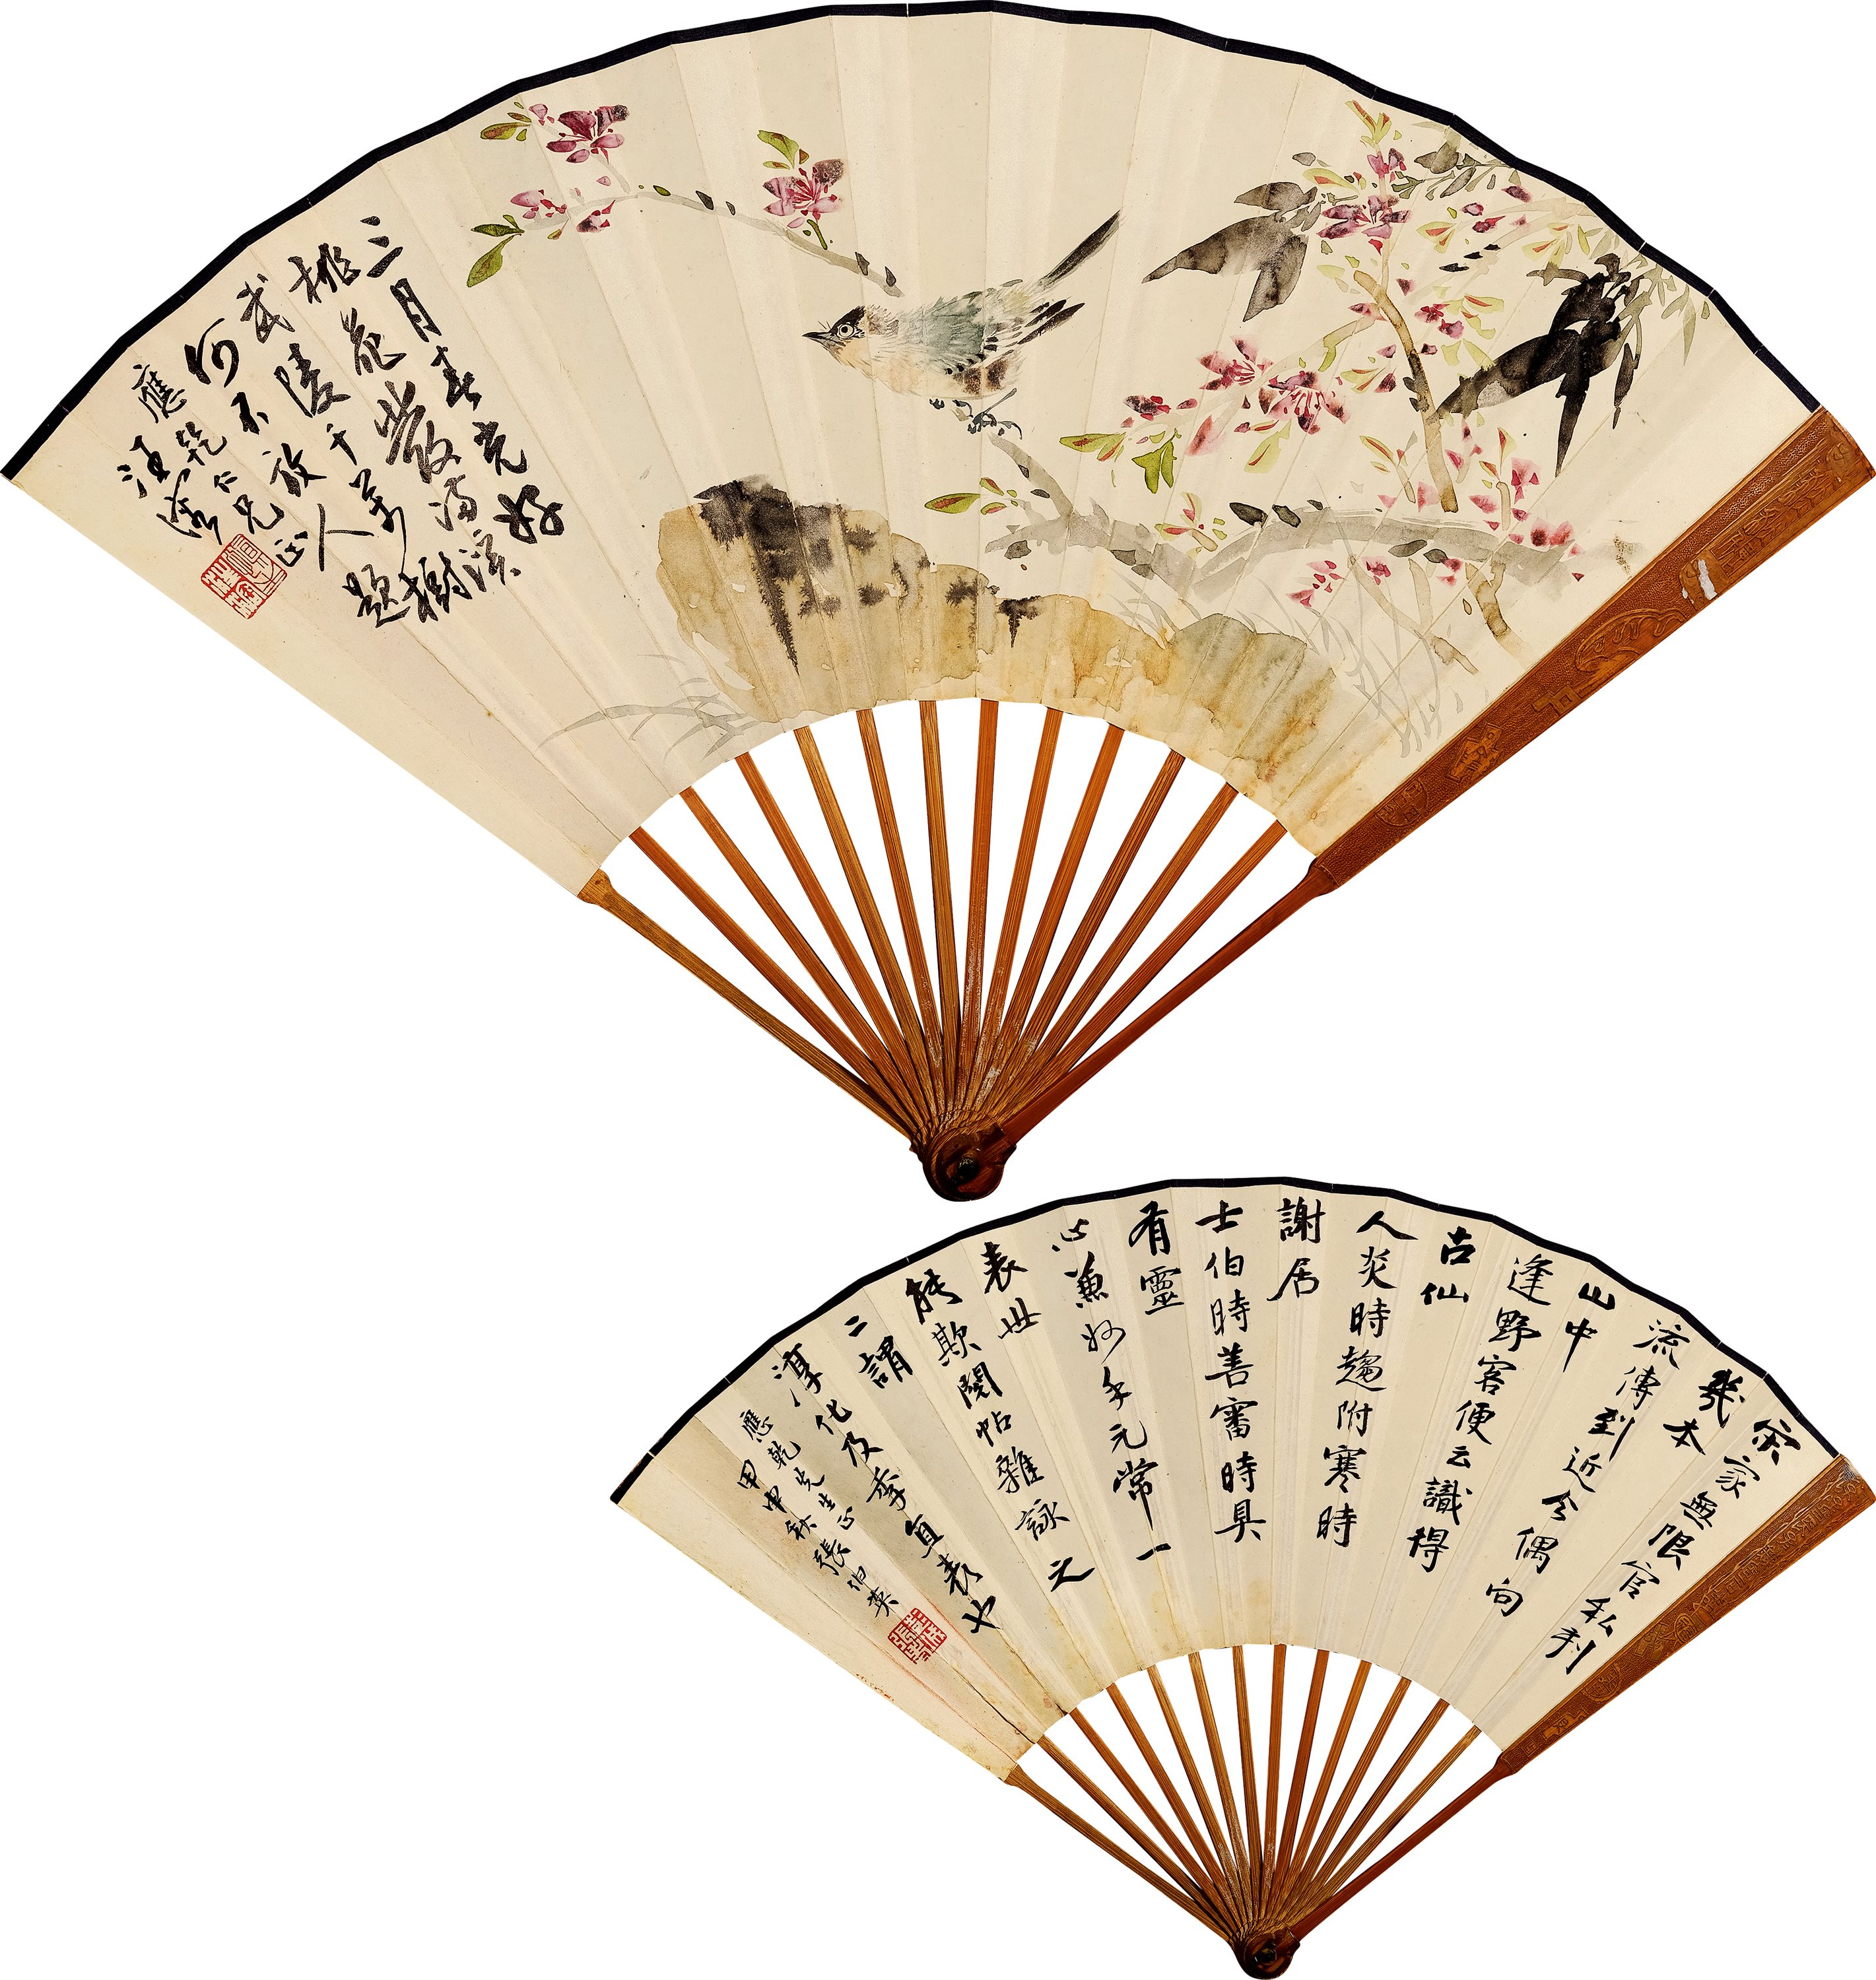 三月春光好
桃花發滿溪
武陵千萬樹
何不放人題
應乾仁兄正
汪溶
宋家無限官私刊
幾本
流傳到近今偶向
山中
逢野客便云識得
古仙
人炎時趨附寒時
謝居
士伯時善審時具
有靈
心兼妙手元常一
表世
能欺閣帖雜詠之
二謂
淳化及季直表也
應乾先生正
甲申秋張伯英